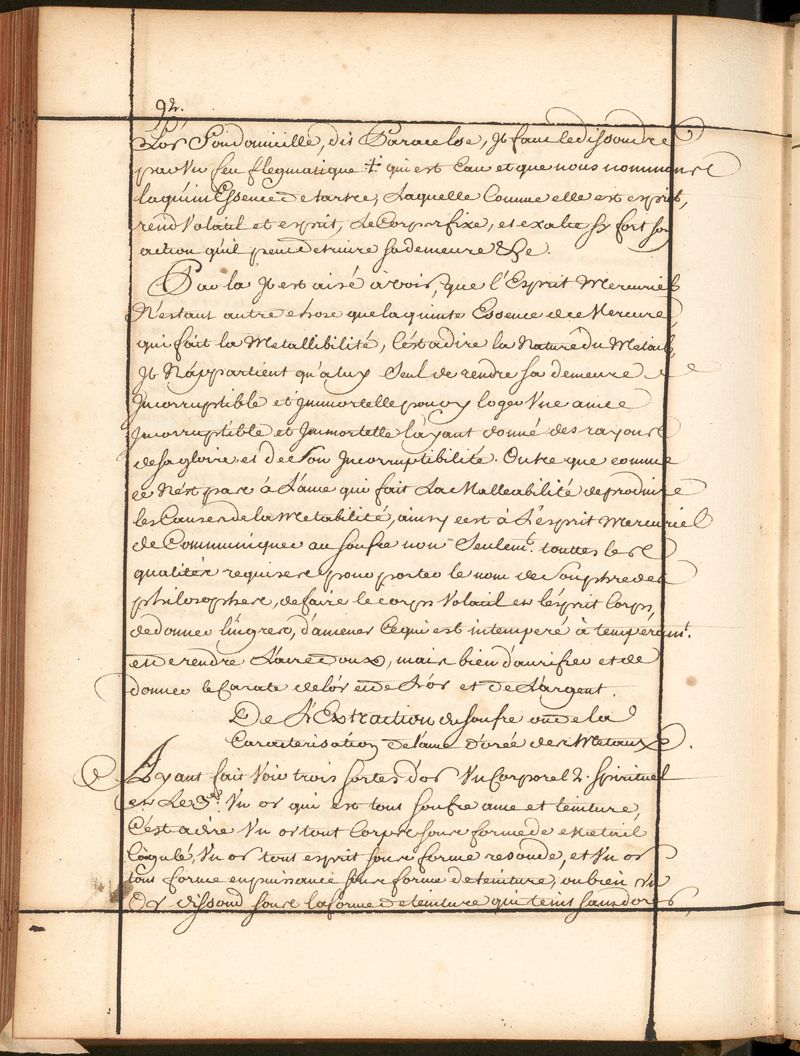 92.
L'or Soi domicille, dis Paracelse, Jl faut le dissoudre
par Vn feu flegmatique + qui est Eau et que nous nommons
la quin Essence de tartre, Laquelle Comme elle est esprit,
rend Volatil et esprit, Le Corps fixe, et exalte sy fort son
action quil peut detruire sa demeure &c.
Par la Jl est aisé à voir, que l'Esprit Mercuriel
N'estant autre chose que la quinte Essence de Mercure,
qui fait la Metallibilité, C'est a dire la Nature du Metail,
Jl N'appartient qu'a luy Seul de rendre sa demeure
Jncorruptible et Jmmortelle pour y loger Vne amee
Jncorruptible et Jmmortelle L'ayant donné des rayons
de sa gloire et de son Jncorruptibilité. Outre que comme
ce N'est pas à L'ame qui fait La Malleabilité de produire
les Causes de la Metabilité, ainsy c'est à L'esprit Mercuriel
de Communiquer au soufre non Seulemt. touttes les
qualités requises pour porter le nom de Souphre des
philosophes, de faire le corps Volatil et l'esprit Corps,
de donner l'ingres, d'amener Ce qui est intemperé à temperamt.
et de rendre L'aire doux, mais bien d'aurifier et de
donner le Carate de l'or et de L'or et de L'argent.
De L'Extraction du soufre ou de la
Caracterisation de l'ame d'orée des Metaux.
Ayant fait Voir trois sortes d'or Vn Corporel 2. spirituel
et Le 3e. Vn or qui est tout soufre ame et teinture,
C'est a dire Vn or tout Corps sous forme de Metail
Coagulé, Vn or tout esprit sous forme resoude, et Vn or
tout forme en puissance sous forme de teinture, ou bien Vn
Or dissoud sous la forme de teinture qui teint sans dorer,